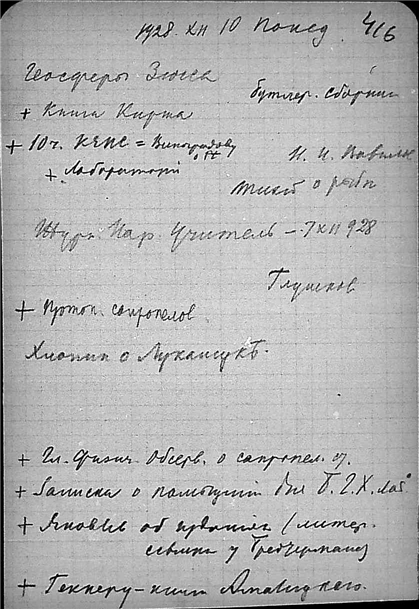 1928. XII 10 Понед. 416
Геосферы Зюсса
бутлер. сборник
+ Книга Кирша
+ 10 ч. КЕПС = Виноградову
+ Лаборатории
Н. И. Вавилов
о
Журн. Нар. Учитель – 7 XII 928
Глушков
+ Проток. сапропелов.
Хлопин о Лукашукъ.
+ Гл. Физич. Обсерв. о сапропел. оз.
+ Записка о помощи для Б. Г. Х. Лаб.
+ Яковлев об издании (литер.
ссылки у
+ Геккеру – книги Амалицкого.